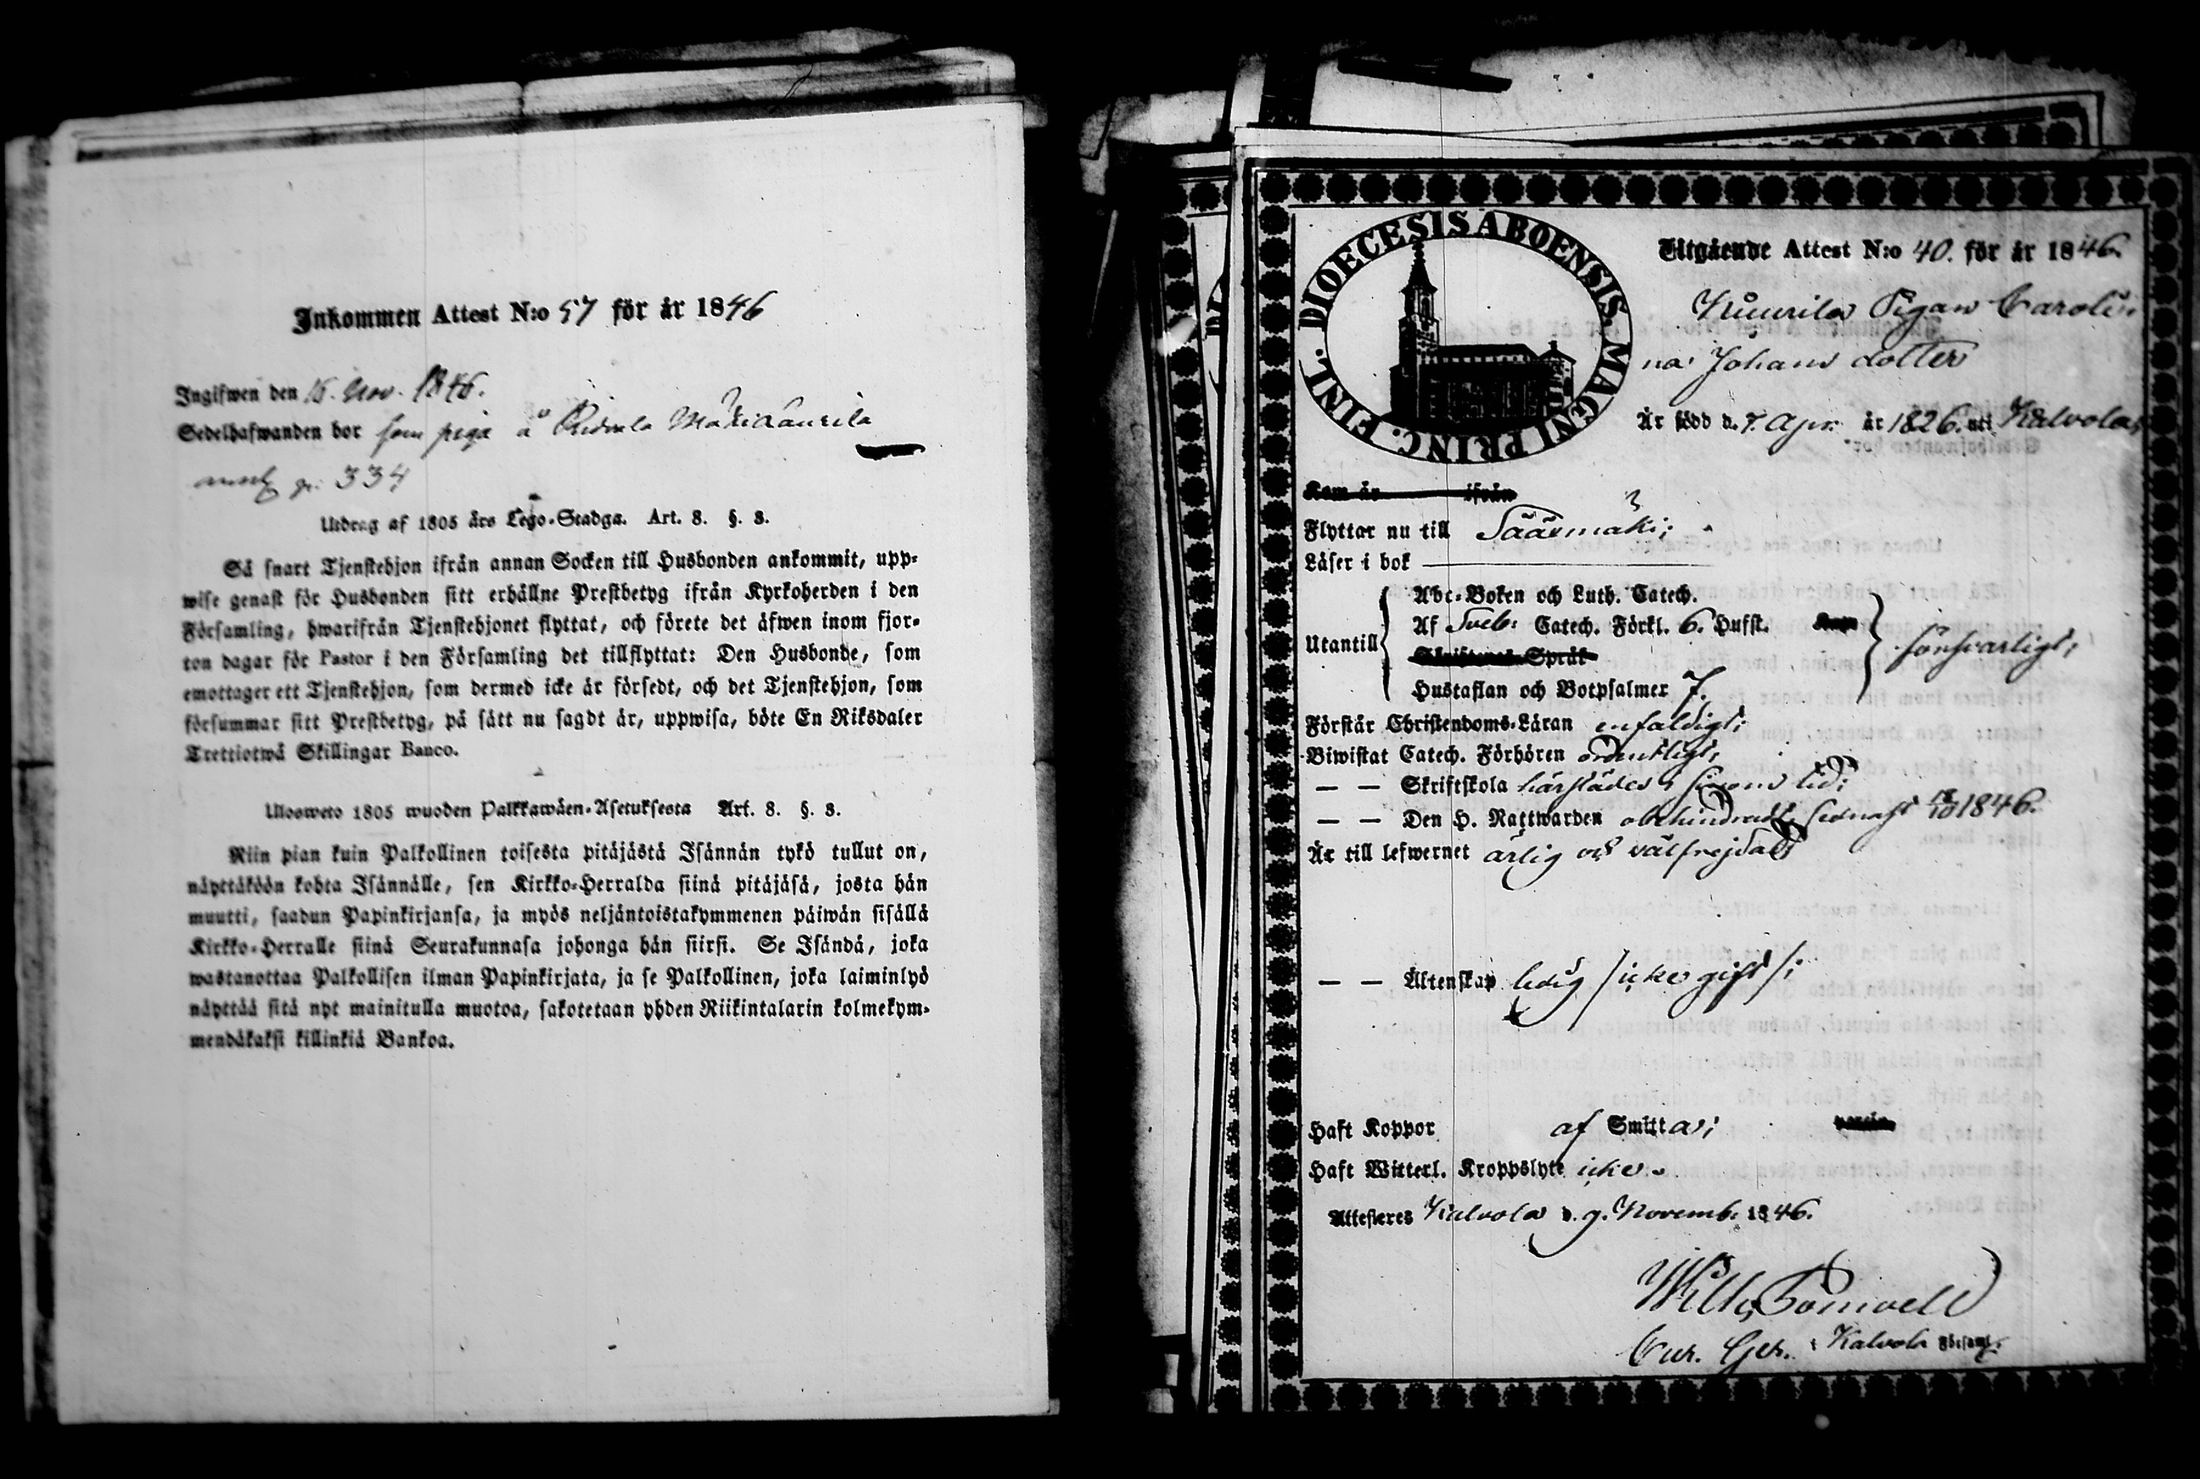 Inkommen Attest N:o 57 för år 1846
Ingifwen den 15. Nov. 1846.
Sedelhafwanden bor som piga å Ridvala
334
Utdrag af 1805 års Lego-Stadga. Art. 8. §. 8.
Så snart Tjenstehjon ifrån annan Socken till Husbonden ankommit, upp-
wise genast för Husbonden sitt erhållne Prestbetyg ifrån Kyrkoherden i den
Församling, hwarifrån Tjenstehjonet flyttat, och förete det äfwen inom fjor-
ton dagar för Pastor i den Församling det tillflyttat: Den Husbonde, som
emottager ett Tjenstehjon, som dermed icke är försedt, och det Tjenstehjon, som
försummar sitt Prestbetyg, på sätt nu sagdt är, uppwisa, böte En Riksdaler
Trettiotwå Skillingar Banco.
Ulosweto 1805 wuoden Palkkawäen-Asetuksesta Art. 8. §. 8.
Niin pian kuin Palkollinen toisesta pitäjästä Isännän tykö tullut on,
näyttäköön kohta Isännälle, sen Kirkko-Herralda siinä pitäjäsä, josta hän
muutti, saadun Papinkirjansa, ja myös neljäntoistakymmenen päiwän sisällä
Kirkko-Herralle siinä Seurakunnasa johonga hän siirsi. Se Isändä, joka
wastanottaa Palkollisen ilman Papinkirjata, ja se Palkollinen, joka laiminlyö
näyttää sitä nyt mainitulla muotoa, sakotetaan yhden Riikintalarin kolmekym-
mendäkaksi killinkiä Bankoa.
DIOECESIS ABOENSIS. MAGNI PRINC. FINL.
Utgående Attest N:o 40. för år 1846.
Kuurila Pigan Caroli-
na Johans dotter
Är född d. 7. Apr. år 1826. uti Kalvola;
Kom år ifrån
Flyttar nu till Sääxmäki;
Läser i bok
Abc-Boken och Luth. Catech.
Utantill Af Sveb: Catech. Förkl. 6. Hufst. försvarligt;
Skriftenes Språk
Hustaflan och Botpsalmer 7.
Förstår Christendoms-Läran enfaldigt;
Biwistat Catech. Förhören ordentligt;
— — Skriftskola härstädes i sinom tid;
— — Den H. Nattwarden obehindradt, sednast 18/10 1846.
Är till lefwernet ärlig och välfrejdad
— — Äktenskap ledig /icke gift/;
Haft Koppor af Smitta;
Haft Witterl. Kroppslyte icke.
Attesteres Kalvola d. 9. Novemb. 1846.
Cur. Ger. i Kalvola Församl.